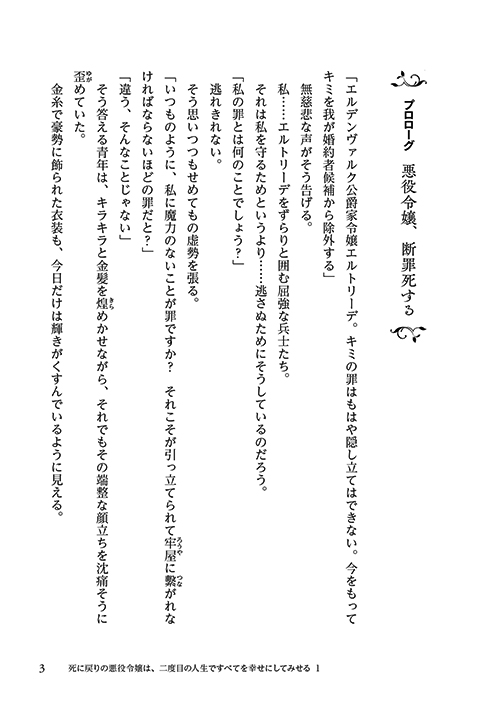 プロローグ　悪役令嬢、断罪死する
「エルデンヴァルク公爵家令嬢エルトリーデ。キミの罪はもはや隠し立てはできない。今をもって
キミを我が婚約者候補から除外する」
無慈悲な声がそう告げる。
私……エルトリーデをずらりと囲む屈強な兵士たち。
それは私を守るためというより……逃さぬためにそうしているのだろう。
「私の罪とは何のことでしょう？」
逃れきれない。
そう思いつつもせめてもの虚勢を張る。
「いつものように、私に魔力のないことが罪ですか？　それこそが引っ立てられて牢屋に繋がれな
ければならないほどの罪だと？」
「違う、そんなことじゃない」
そう答える青年は、キラキラと金髪を煌めかせながら、それでもその端整な顔立ちを沈痛そうに
歪めていた。
金糸で豪勢に飾られた衣装も、今日だけは輝きがくすんでいるように見える。
3　死に戻りの悪役令嬢は、二度目の人生ですべてを幸せにしてみせる　1